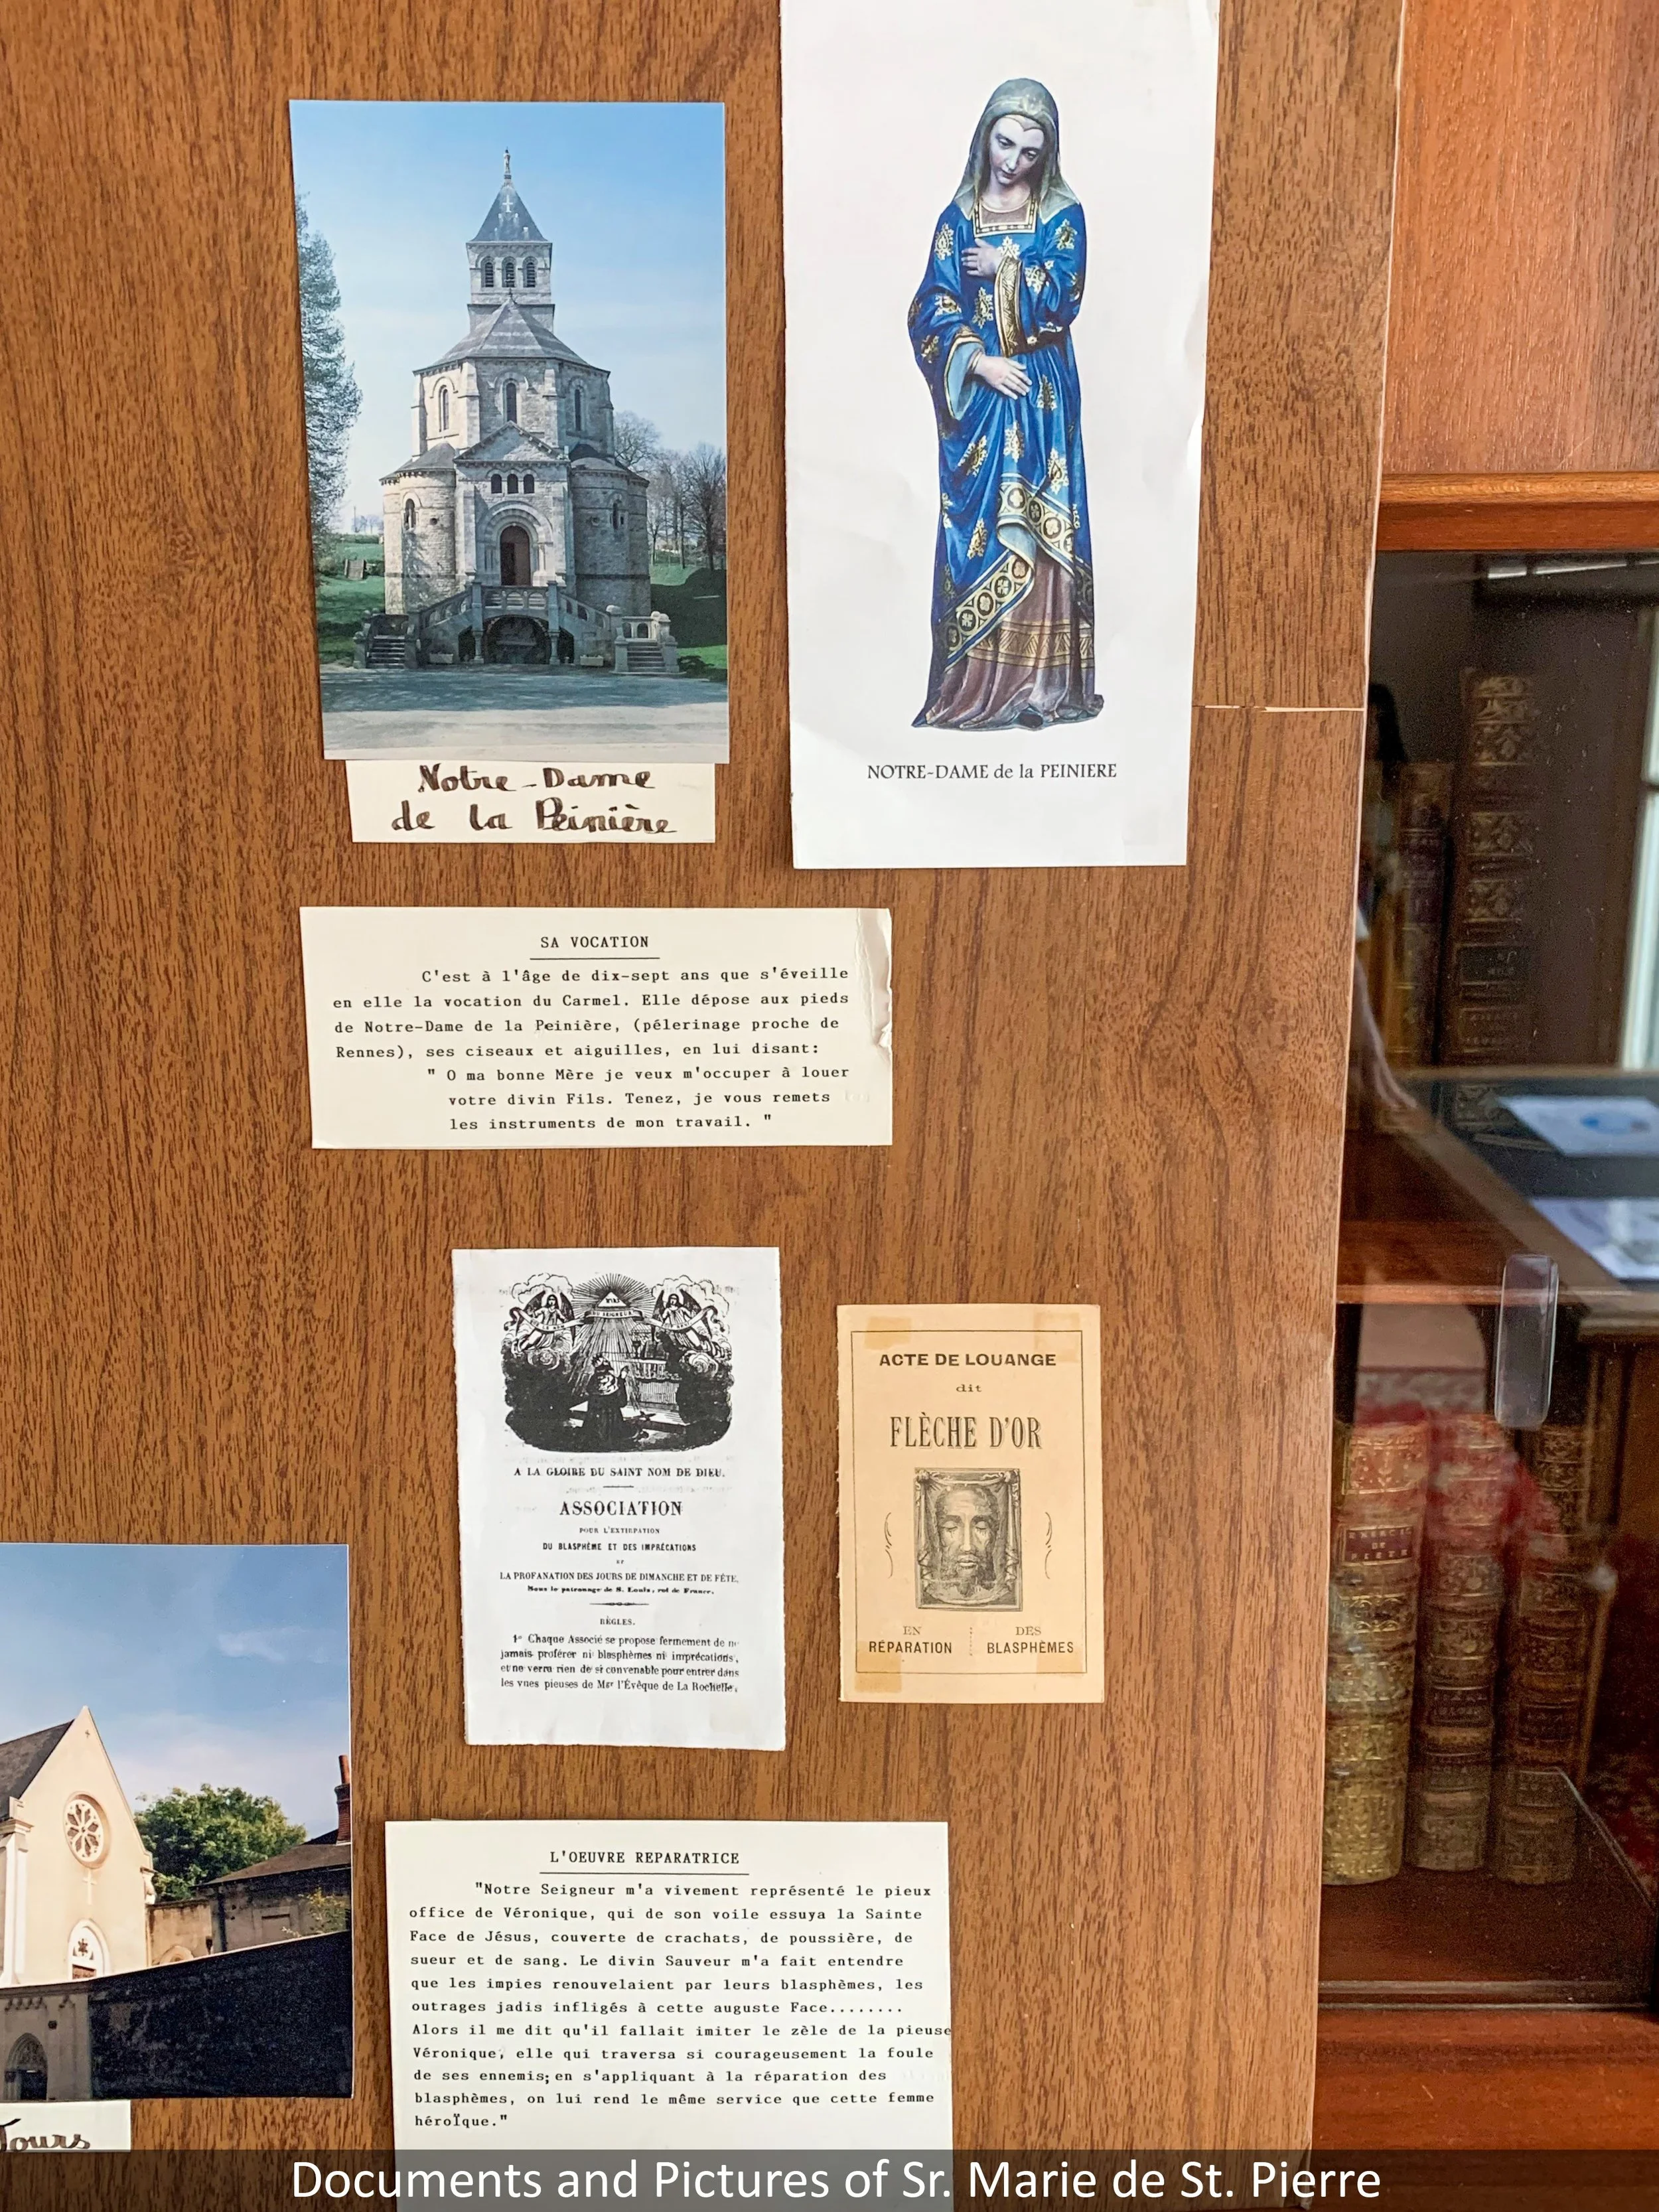 Notre-Dame
de la Peinière
NOTRE-DAME de la PEINIERE
SA VOCATION
C'est à l'âge de dix-sept ans que s'éveille
en elle la vocation du Carmel. Elle dépose aux pieds
de Notre-Dame de la Peinière, (pélerinage proche de
Rennes), ses ciseaux et aiguilles, en lui disant:
" O ma bonne Mère je veux m'occuper à louer
votre divin Fils. Tenez, je vous remets
les instruments de mon travail. "
A LA GLOIRE DU SAINT NOM DE DIEU.
ASSOCIATION
POUR L'EXTIRPATION
DU BLASPHÈME ET DES IMPRÉCATIONS
ET
LA PROFANATION DES JOURS DE DIMANCHE ET DE FÊTE,
Sous le patronage de S. Louis, roi de France.
RÈGLES.
1º Chaque Associé se propose fermement de ne
jamais proférer ni blasphèmes ni imprécations,
et ne verra rien de si convenable pour entrer dans
les vues pieuses de Mgr l'Évêque de La Rochelle,
ACTE DE LOUANGE
dit
FLÈCHE D'OR
EN DES
RÉPARATION BLASPHÈMES
EXERCIC
DE
PIETE
Tours
L'OEUVRE REPARATRICE
"Notre Seigneur m'a vivement représenté le pieux
office de Véronique, qui de son voile essuya la Sainte
Face de Jésus, couverte de crachats, de poussière, de
sueur et de sang. Le divin Sauveur m'a fait entendre
que les impies renouvelaient par leurs blasphèmes, les
outrages jadis infligés à cette auguste Face........
Alors il me dit qu'il fallait imiter le zèle de la pieuse
Véronique, elle qui traversa si courageusement la foule
de ses ennemis; en s'appliquant à la réparation des
blasphèmes, on lui rend le même service que cette femme
héroÏque."
Documents and Pictures of Sr. Marie de St. Pierre